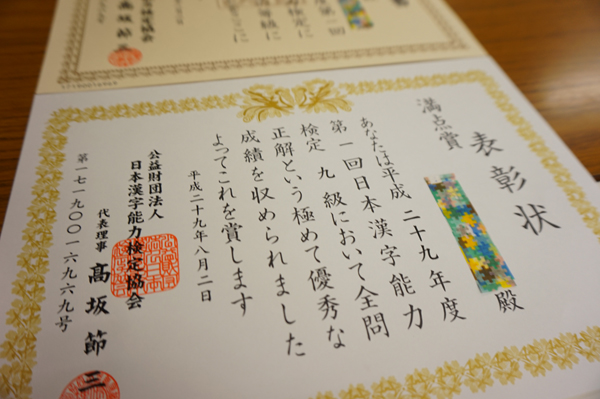 表彰状
満点賞
殿
あなたは平成二十九年度
第一回日本漢字能力
検定 九級において全問
正解という極めて優秀な
成績を収められました
よってこれを賞します
平成二十九年八月二日
公益財団法人
日本漢字能力検定協会
代表理事 髙坂節三
第一七一九〇〇一六九六九号